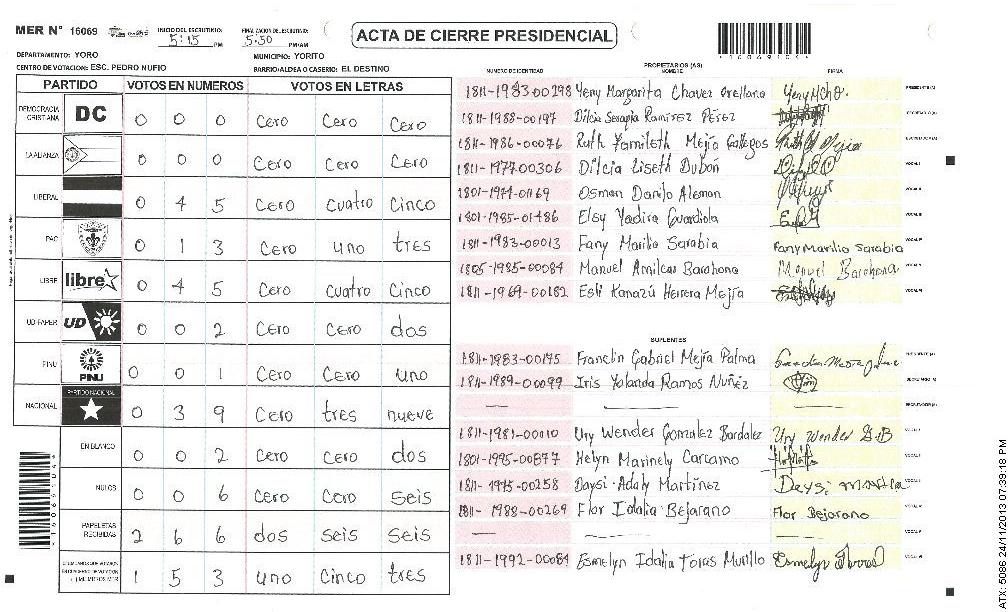 MER N° 16069
INICIO DEL ESCRUTINIO: 5:15 PM
FINALIZACION DEL ESCRUTINIO: 5:50 PM/AM
ACTA DE CIERRE PRESIDENCIAL
DEPARTAMENTO: YORO
MUNICIPIO: YORITO
CENTRO DE VOTACION: ESC. PEDRO NUFIO
BARRIO/ALDEA O CASERIO: EL DESTINO
PARTIDO VOTOS EN NUMEROS VOTOS EN LETRAS
DEMOCRACIA CRISTIANA DC 0 0 0 Cero Cero Cero
LA ALIANZA 0 0 0 Cero Cero Cero
LIBERAL 0 4 5 Cero Cuatro Cinco
PAC 0 1 3 Cero uno tres
LIBRE libre 0 4 5 Cero Cuatro Cinco
UD-FAPER UD 0 0 2 Cero Cero dos
PINU PINU 0 0 1 Cero Cero uno
NACIONAL PARTIDO NACIONAL 0 3 9 Cero tres nueve
EN BLANCO 0 0 2 Cero Cero dos
NULOS 0 0 6 Cero Cero Seis
PAPELETAS RECIBIDAS 2 6 6 dos seis Seis
1 5 3 uno Cinco tres
NUMERO DE IDENTIDAD PROPIETARIOS (AS) NOMBRE FIRMA
1811-1983-00298 Yeny Margarita Chavez Orellana PRESIDENTE (A)
1811-1988-00197 Dilcia Serapia Ramirez Pérez SECRETARIO (A)
1811-1986-00076 Ruth Yamileth Mejía Gallegos ESCRUTADOR (A)
1811-1977-00306 Dilcia Liseth Dubón VOCAL I
1801-1974-01169 Osman Danilo Aleman VOCAL II
1801-1985-01486 Elsy Yadira Guardiola VOCAL III
1811-1983-00013 Fany Marilia Sarabia Fany Marilia Sarabia VOCAL IV
1805-1985-00084 Manuel Amilcar Barahona Manuel Barahona VOCAL V
1811-1969-00182 Esli Kanazú Herrera Mejía VOCAL VI
SUPLENTES
1811-1983-00175 Franclin Gabriel Mejía Palma PRESIDENTE (A)
1811-1989-00099 Iris Yolanda Ramos Nuñez SECRETARIO (A)
ESCRUTADOR (A)
1811-1981-00010 Ury Wender Gonzalez Bardalez Ury Wender G.B VOCAL I
1801-1995-00877 Helyn Marinely Carcamo VOCAL II
1811-1975-00258 Daysi Adaly Martínez VOCAL III
1811-1988-00269 Flor Idalia Bejarano Flor Bejarano VOCAL IV
VOCAL V
1811-1992-00084 Esmelyn Idalia Torres Murillo VOCAL VI
ATX: 5086 24/11/2013 07:39:18 PM